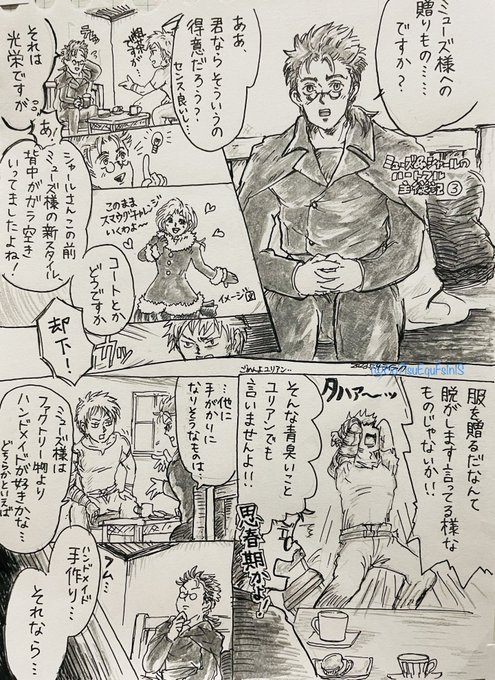 ミューズ様への
贈りもの……
ですか？
ああ、
君ならそういうの
得意だろう？
センス良いし…
それは
光栄ですが
あ！
シャールさん、この前
ミューズ様の新スタイル、
背中がガラ空き
いってましたよね！
このまま
いくわよ〜
イメージ図
コートとか
どうですか
却下！
③
服を贈るだなんて
脱がします言ってる様な
ものじゃないか!!
タハァ〜ッ
ごめんよユリアン…
そんな青臭いこと
ユリアンでも
言いませんよ!!
思春期かよ！
…他に
手がかりに
なりそうなものは…
ミューズ様は
ファクトリー物より
ハンドメイドが好きかな…
どちらかといえば
フム…
ハンドメイド
手作り…
それなら…